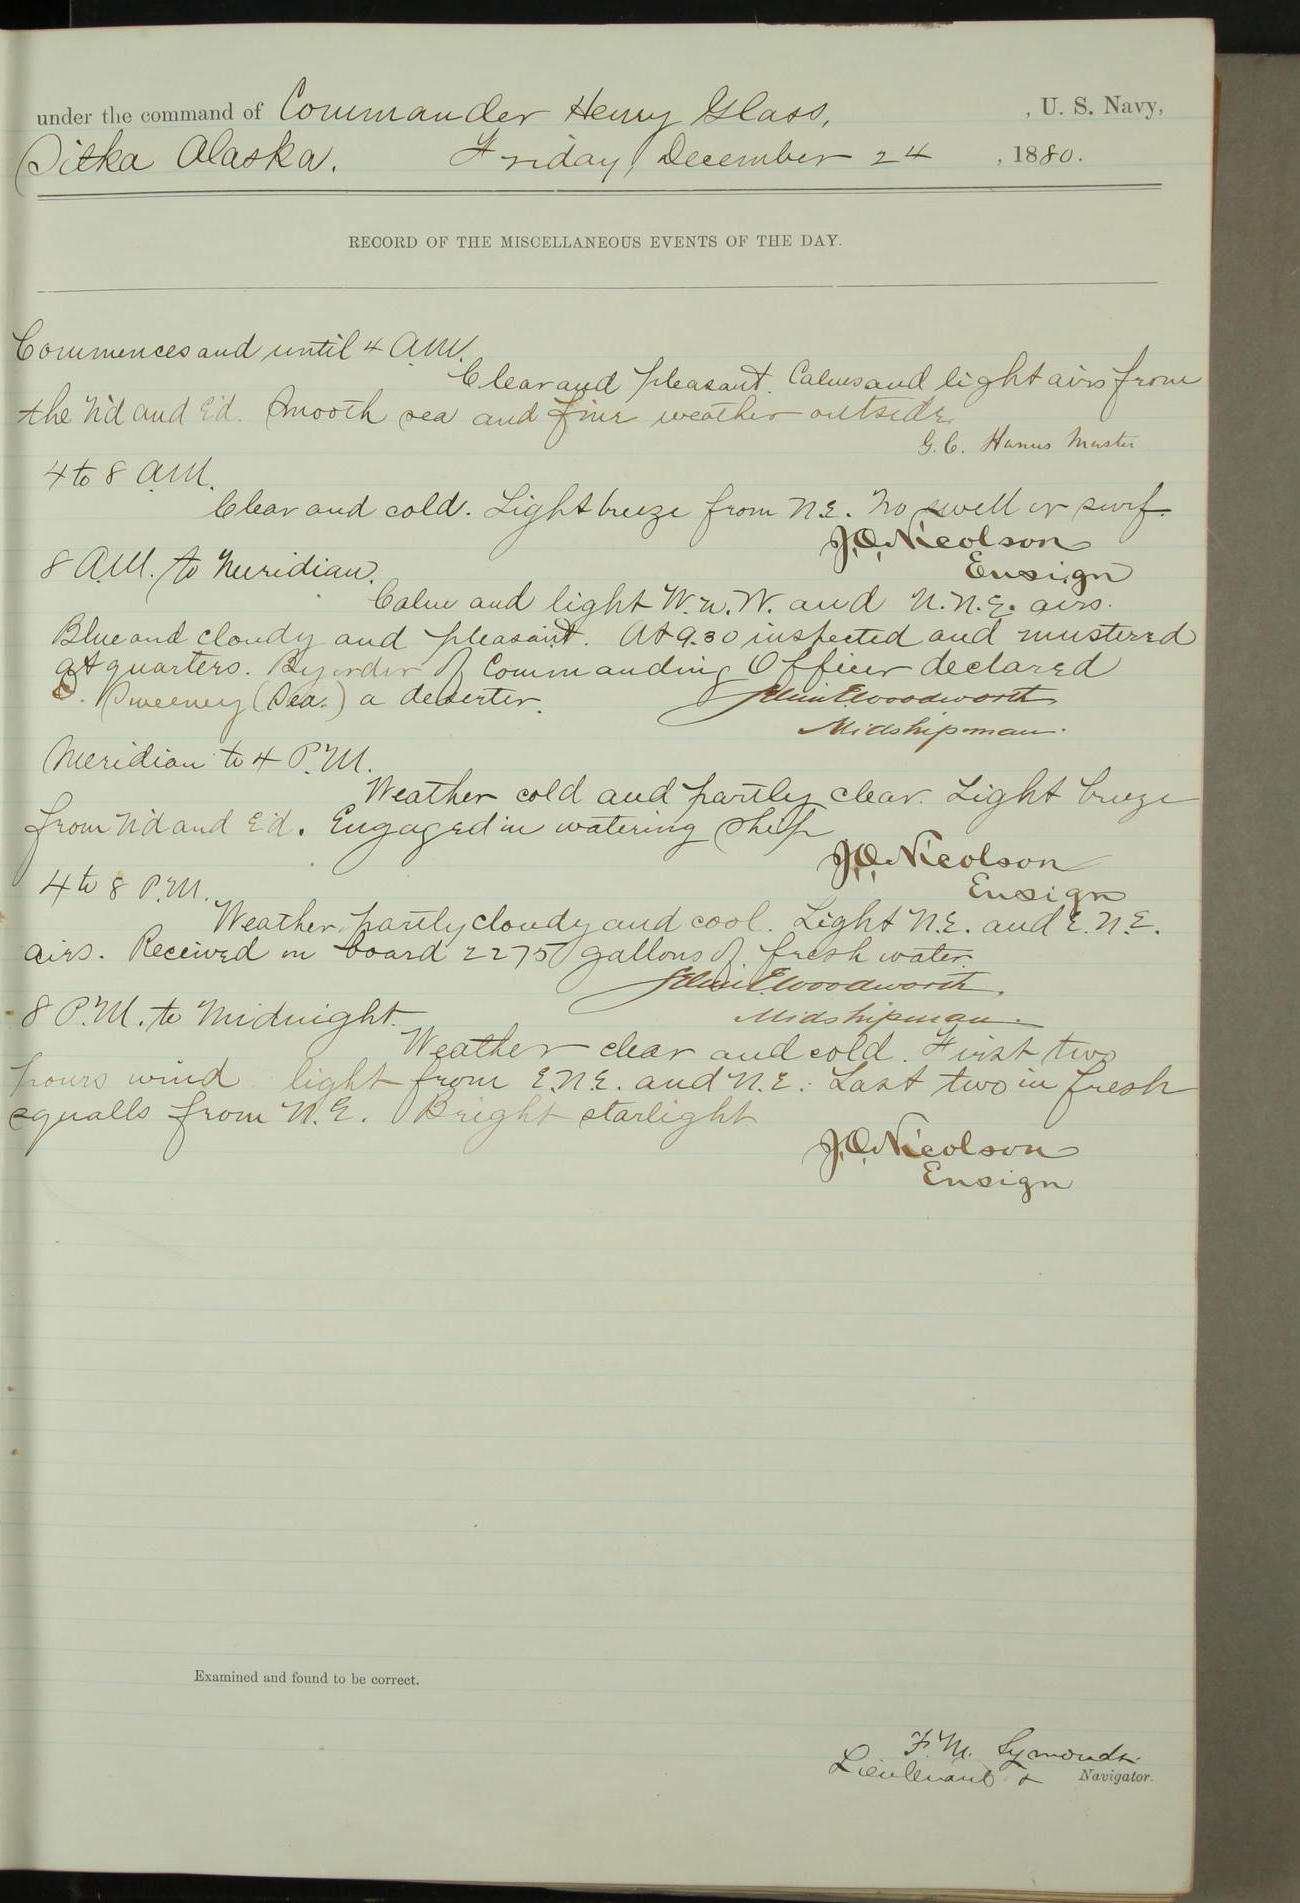 under the command of Commander Henry Glass, , U. S. Navy,
Sitka Alaska. Friday, December 24 , 1880.
RECORD OF THE MISCELLANEOUS EVENTS OF THE DAY.
Commences and until 4 A.M.
Clear and pleasant. Calms and light airs from
the N'd and E'd. Smooth sea and fine weather outside.
G. C. Hanus Master
4 to 8 A.M.
Clear and cold. Light breeze from N.E. No swell or surf.
J.O. Nicolson
Ensign
8 A.M. to Meridian.
Calm and light W.N.W. and N.N.E. airs.
Blue and cloudy and pleasant. At 9.30 inspected and mustered
at quarters. By order of Commanding Officer declared
Sweeney (Sea.) a deserter.
Woodworth
Midshipman.
Meridian to 4 P.M.
Weather cold and partly clear. Light breeze
from N'd and E'd. Engaged in watering ship
J.O. Nicolson
Ensign
4 to 8 P.M.
Weather partly cloudy and cool. Light N.E. and E.N.E.
airs. Received on board 2275 gallons of fresh water.
Woodworth.
Midshipman.
8 P.M. to Midnight.
Weather clear and cold. First two
hours wind light from E.N.E. and N.E. Last two in fresh
squalls from N.E. Bright starlight
J.O. Nicolson
Ensign
Examined and found to be correct.
F. M. Symonds.
Lieutenant & Navigator.